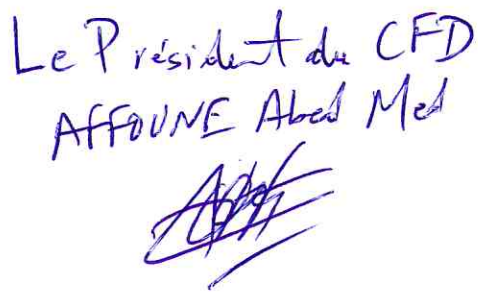 Le Président du CFD
AFFOUNE Abed Med